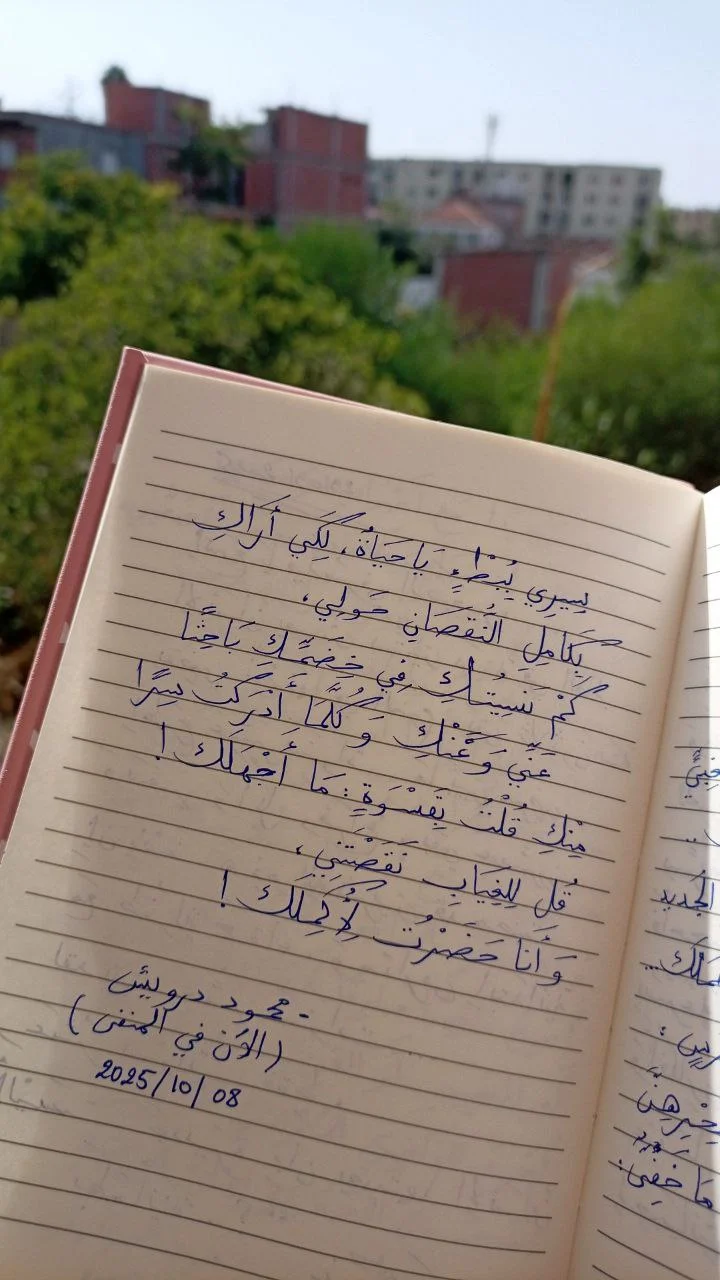 سِيرِي بِبُطْءٍ، يَا حَيَاةُ، لِكَي أَرَاكِ
بِكَامِلِ النُقصَانِ حَولِي،
كَمْ نَسِيتُكِ فِي خِضَمِّكِ بَاحِثًا
عَنِّي وَعَنْكِ وَكُلَّمَا أَدرَكتُ سِرًا
مِنكِ قُلْتُ بِقَسْوَةٍ: مَا أَجْهَلَك!
قُل لِلغِيَابِ نَقَصْتَنِي،
وَأَنَا حَضَرْتُ لِأُكمِلَك!
- محمود درويش
(الآن في المنفى)
2025/10/08
الجُديد